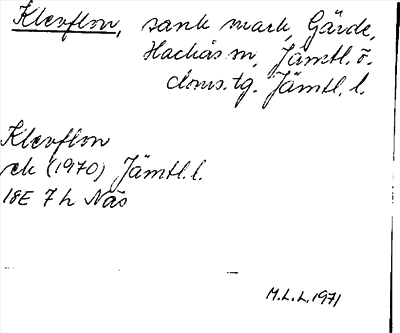 Klevflon, sank mark, Gärde,
Hackås sn, Jämtl. ö.
doms.tg. Jämtl. l.
Klevflon
ek (1970) Jämtl. l.
18E 7h Näs
M.L.L. 1971